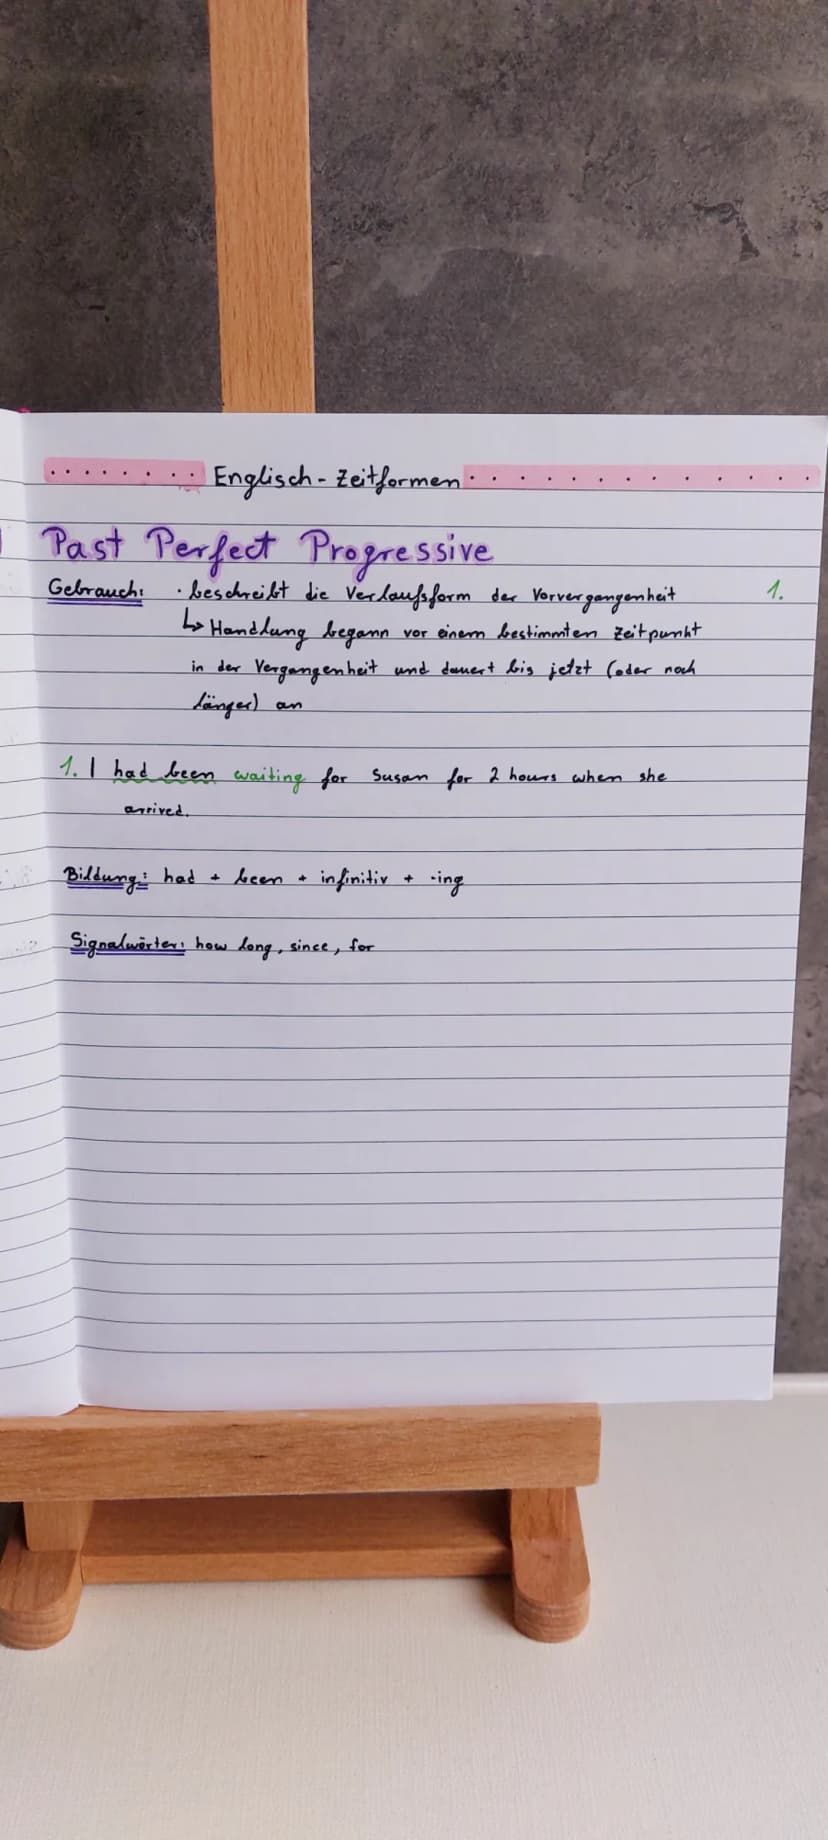 Englisch - Zeitformen
Past Perfect Progressive
Gebrauch: · beschreibt die Verlaufsform der Vorvergangenheit 1.
↳ Handlung begann vor einem bestimmten Zeitpunkt
in der Vergangenheit und dauert bis jetzt (oder noch
länger) an
1. I had been waiting for Susan for 2 hours when she
arrived.
Bildung: had + been + infinitiv + -ing
Signalwörter: how long, since, for